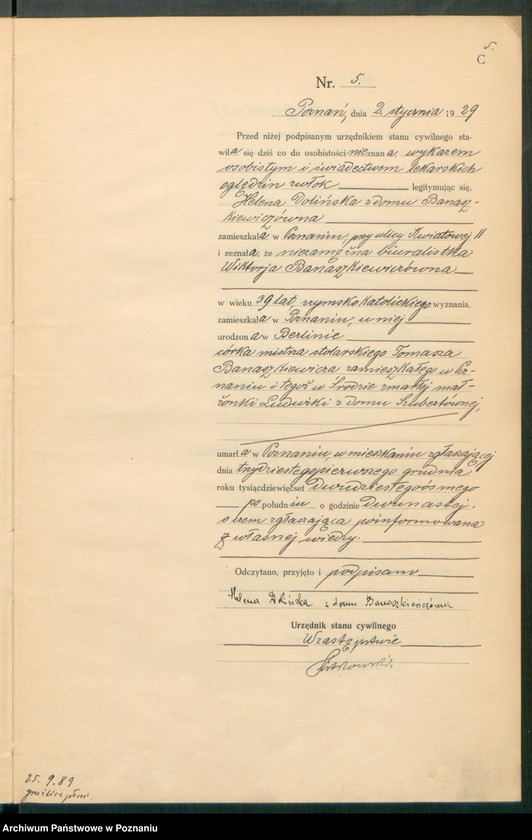 5.
C
Nr. 5.
Poznań, dnia 2. stycznia 1929
Przed niżej podpisanym urzędnikiem stanu cywilnego sta-
wiła się dziś co do osobistości nieznana, wykazem
osobistym i świadectwem lekarskich
oględzin zwłok legitymując się,
Helena Dolińska z domu Banasz-
kiewiczówna
zamieszkała w Poznaniu, przy ulicy Kwiatowej 11
i zeznała, że niezamężna biuralistka
Wiktorja Banaszkiewiczówna
w wieku 39 lat, rzymsko katolickiego wyznania,
zamieszkała w Poznaniu, u niej
urodzona w Berlinie
córka mistrza stolarskiego Tomasza
Banaszkiewicza zamieszkałego w Poz-
naniu i tegoż w Środzie zmarłej mał-
żonki Ludwiki z domu Szubertównej,
umarła w Poznaniu, w mieszkaniu zgłaszającej
dnia trzydziestegopierwszego grudnia
roku tysiącdziewięćset dwudziestegoósmego
po południu o godzinie dwunastej.
o czem zgłaszająca poinformowana
z własnej wiedzy.
Odczytano, przyjęto i podpisano
Helena Dolińska z domu Banaszkiewiczówna
Urzędnik stanu cywilnego
W zastępstwie
25. 9. 89
Archiwum Państwowe w Poznaniu